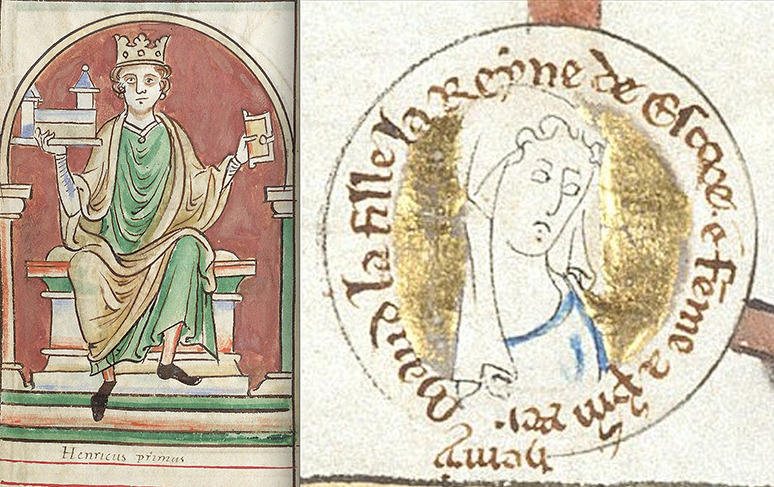 Henricus primus
Maud la fille la Reyne de Escoce · e feme a rei. henry